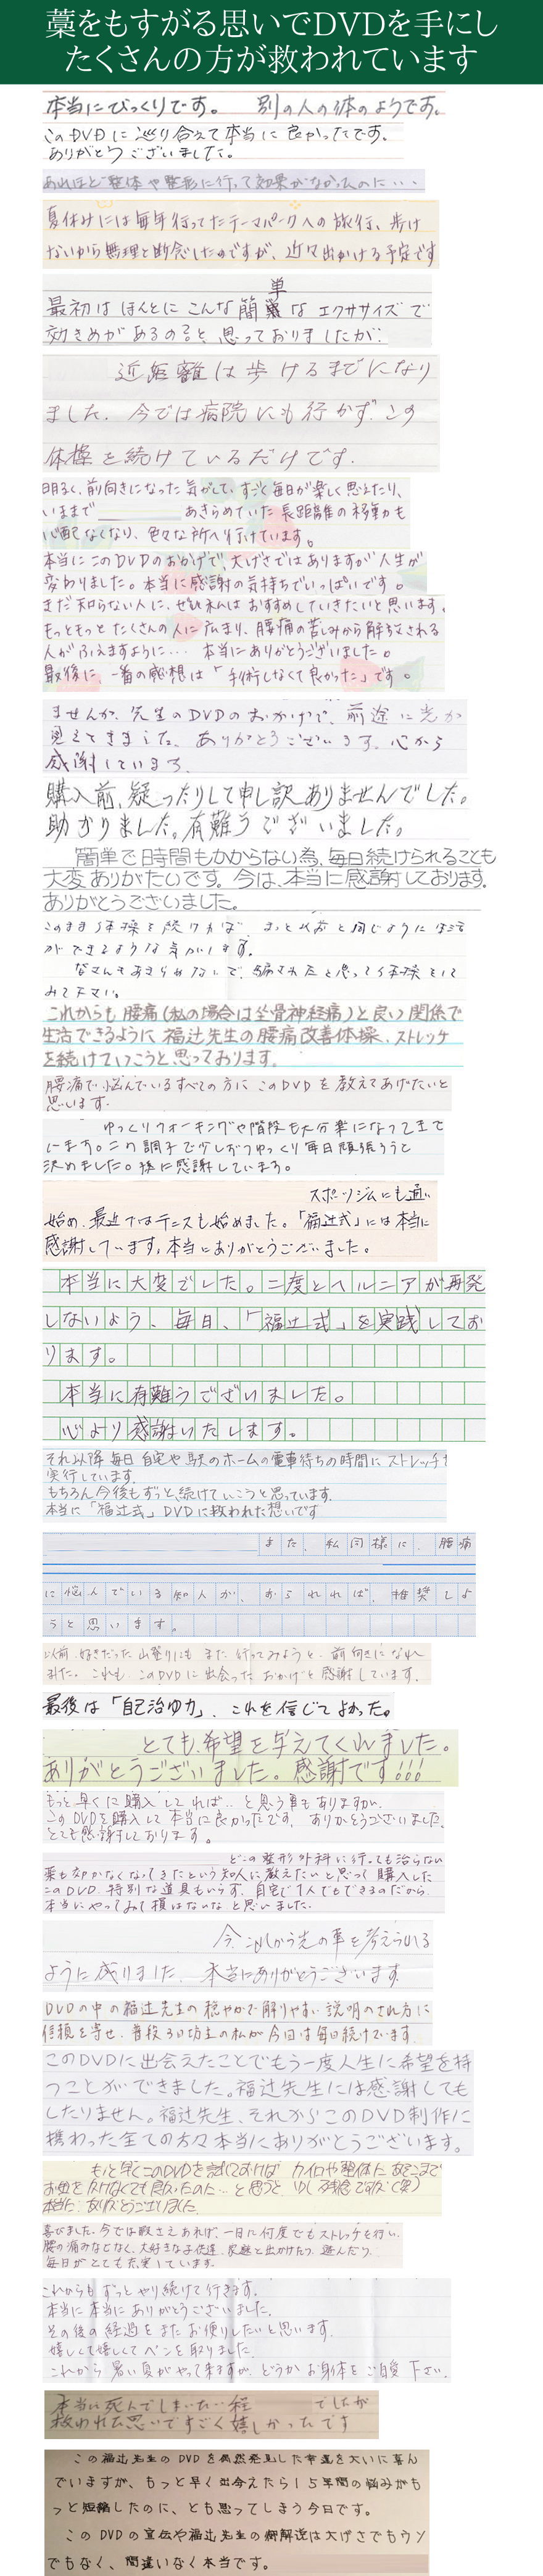 藁をもすがる思いでDVDを手にし
たくさんの方が救われています
本当にびっくりです。 別の人の体のようです。
このDVDに巡り合えて本当に良かったです。
ありがとうございました。
あれほど整体や整形に行って効果がなかったのに・・・
夏休みには毎年行ってたテーマパークへの旅行、歩け
ないから無理と断念したのですが、近々出かける予定です
単
最初はほんとにこんな簡な エクササイズで
効きめがあるの?と思っておりましたが、
近距離は歩けるまでになり
ました。今では病院にも行かず、この
体操を続けているだけです。
明るく、前向きになった気がして、すごく毎日が楽しく思えたり、
いままで あきらめていた長距離の移動も
心配なくなり、色々な所へ行けています。
本当にこのDVDのおかげで、大げさではありますが人生が
変わりました。本当に感謝の気持ちでいっぱいです。
まだ知らない人に、ぜひ私はおすすめしていきたいと思います。
もっともっとたくさんの人に広まり、腰痛の苦しみから解放される
人がふえますように・・・ 本当にありがとうございました。
最後に、一番の感想は「手術しなくて良かった」です。
ませんが、先生のDVDのおかげで、前途に光が
見えてきました。ありがとうございます。心から
感謝しています。
購入前、疑ったりして申し訳ありませんでした。
助かりました。有難うございました。
簡単で時間もかからない為、毎日続けられることも
大変ありがたいです。今は、本当に感謝しております。
ありがとうございました。
このまま体操を続ければ、きっと以前と同じように生活
ができるような気がします。
なさんもあきらめないで、騙されたと思って体操をして
みて下さい。
これからも腰痛(私の場合は坐骨神経痛)と良い関係で
生活できるように福辻先生の腰痛改善体操、ストレッチ
を続けていこうと思っております。
腰痛で悩んでいるすべての方にこのDVDを教えてあげたいと
思います。
ゆっくりウォーキングや階段も大分楽になってきて
います。この調子で少しずつゆっくり毎日頑張ろうと
決めました。様に感謝しています。
スポーツジムにも通い
始め、最近ではテニスも始めました。「福辻式」には本当に
感謝しています。本当にありがとうございました。
本当に大変でした。二度とヘルニアが再発
しないよう、毎日、「福辻式」を実践してお
ります。
本当に有難うございました。
心より感謝いたします。
それ以降毎日自宅や駅のホームの電車待ちの時間にストレッチを
実行しています。
もちろん今後もずっと続けていこうと思っています。
本当に「福辻式」DVDに救われた想いです
また、私同様に、腰痛
に悩んでいる知人が、おられれば、推奨しよ
うと思います。
以前好きだった山登りにもまた行ってみようと、前向きになれ
ました。これも、このDVDに出会ったおかげと感謝しています。
最後は「自己治ゆ力」、これを信じてよかった。
とても希望を与えてくれました。
ありがとうございました。感謝です!!!
もっと早くに購入していれば…と思う事もありますが、
このDVDを購入して本当に良かったです。ありがとうございました。
とても感謝しております。
どこの整形外科に行っても治らない
薬も効かなくなってきたという知人に教えたいと思って購入した
このDVD 特別な道具もいらず、自宅で1人でもできるのだから、
本当にやってみて損はないなと思いました。
今、これから先の事を考えられる
ように成りました、本当にありがとうございます
DVDの中の福辻先生の穏やかで解りやすい説明のされ方に
信頼を寄せ、普段3日坊主の私が今日は毎日続けています。
このDVDに出会えたことでもう一度人生に希望を持
つことができました。福辻先生には感謝しても
したりません。福辻先生、それからこのDVD制作に
携わった全ての方々本当にありがとうございます。
もっと早くこのDVDを試しておけば カイロや整体にあそこまで
お金をかけなくても良かったのに…と思うと、少し残念ですが(笑)
本当に ありがとうございました
喜びました。今では暇さえあれば、一日に何度でもストレッチを行い、
腰の痛みなどなく、大好きな子供達、家庭と出かけたり、遊んだり、
毎日がとても充実しています。
これからも ずっとやり続けて行きます。
本当に本当にありがとうございました。
その後の経過をまたお便りしたいと思います。
嬉しくて嬉しくてペンを取りました
これから 暑い夏がやって来ますが、どうかお身体をご自愛下さい。
本当に死んでしまいたい程 でしたが
救われた思いですごく嬉しかったです
この福辻先生のDVDを偶然発見した幸運を大いに喜ん
でいますが、もっと早く出会えたら15年間の悩みがも
っと短縮したのに、とも思ってしまう今日です。
このDVDの宣伝や福辻先生の御解説は大げさでもウソ
でもなく、間違いなく本当です。